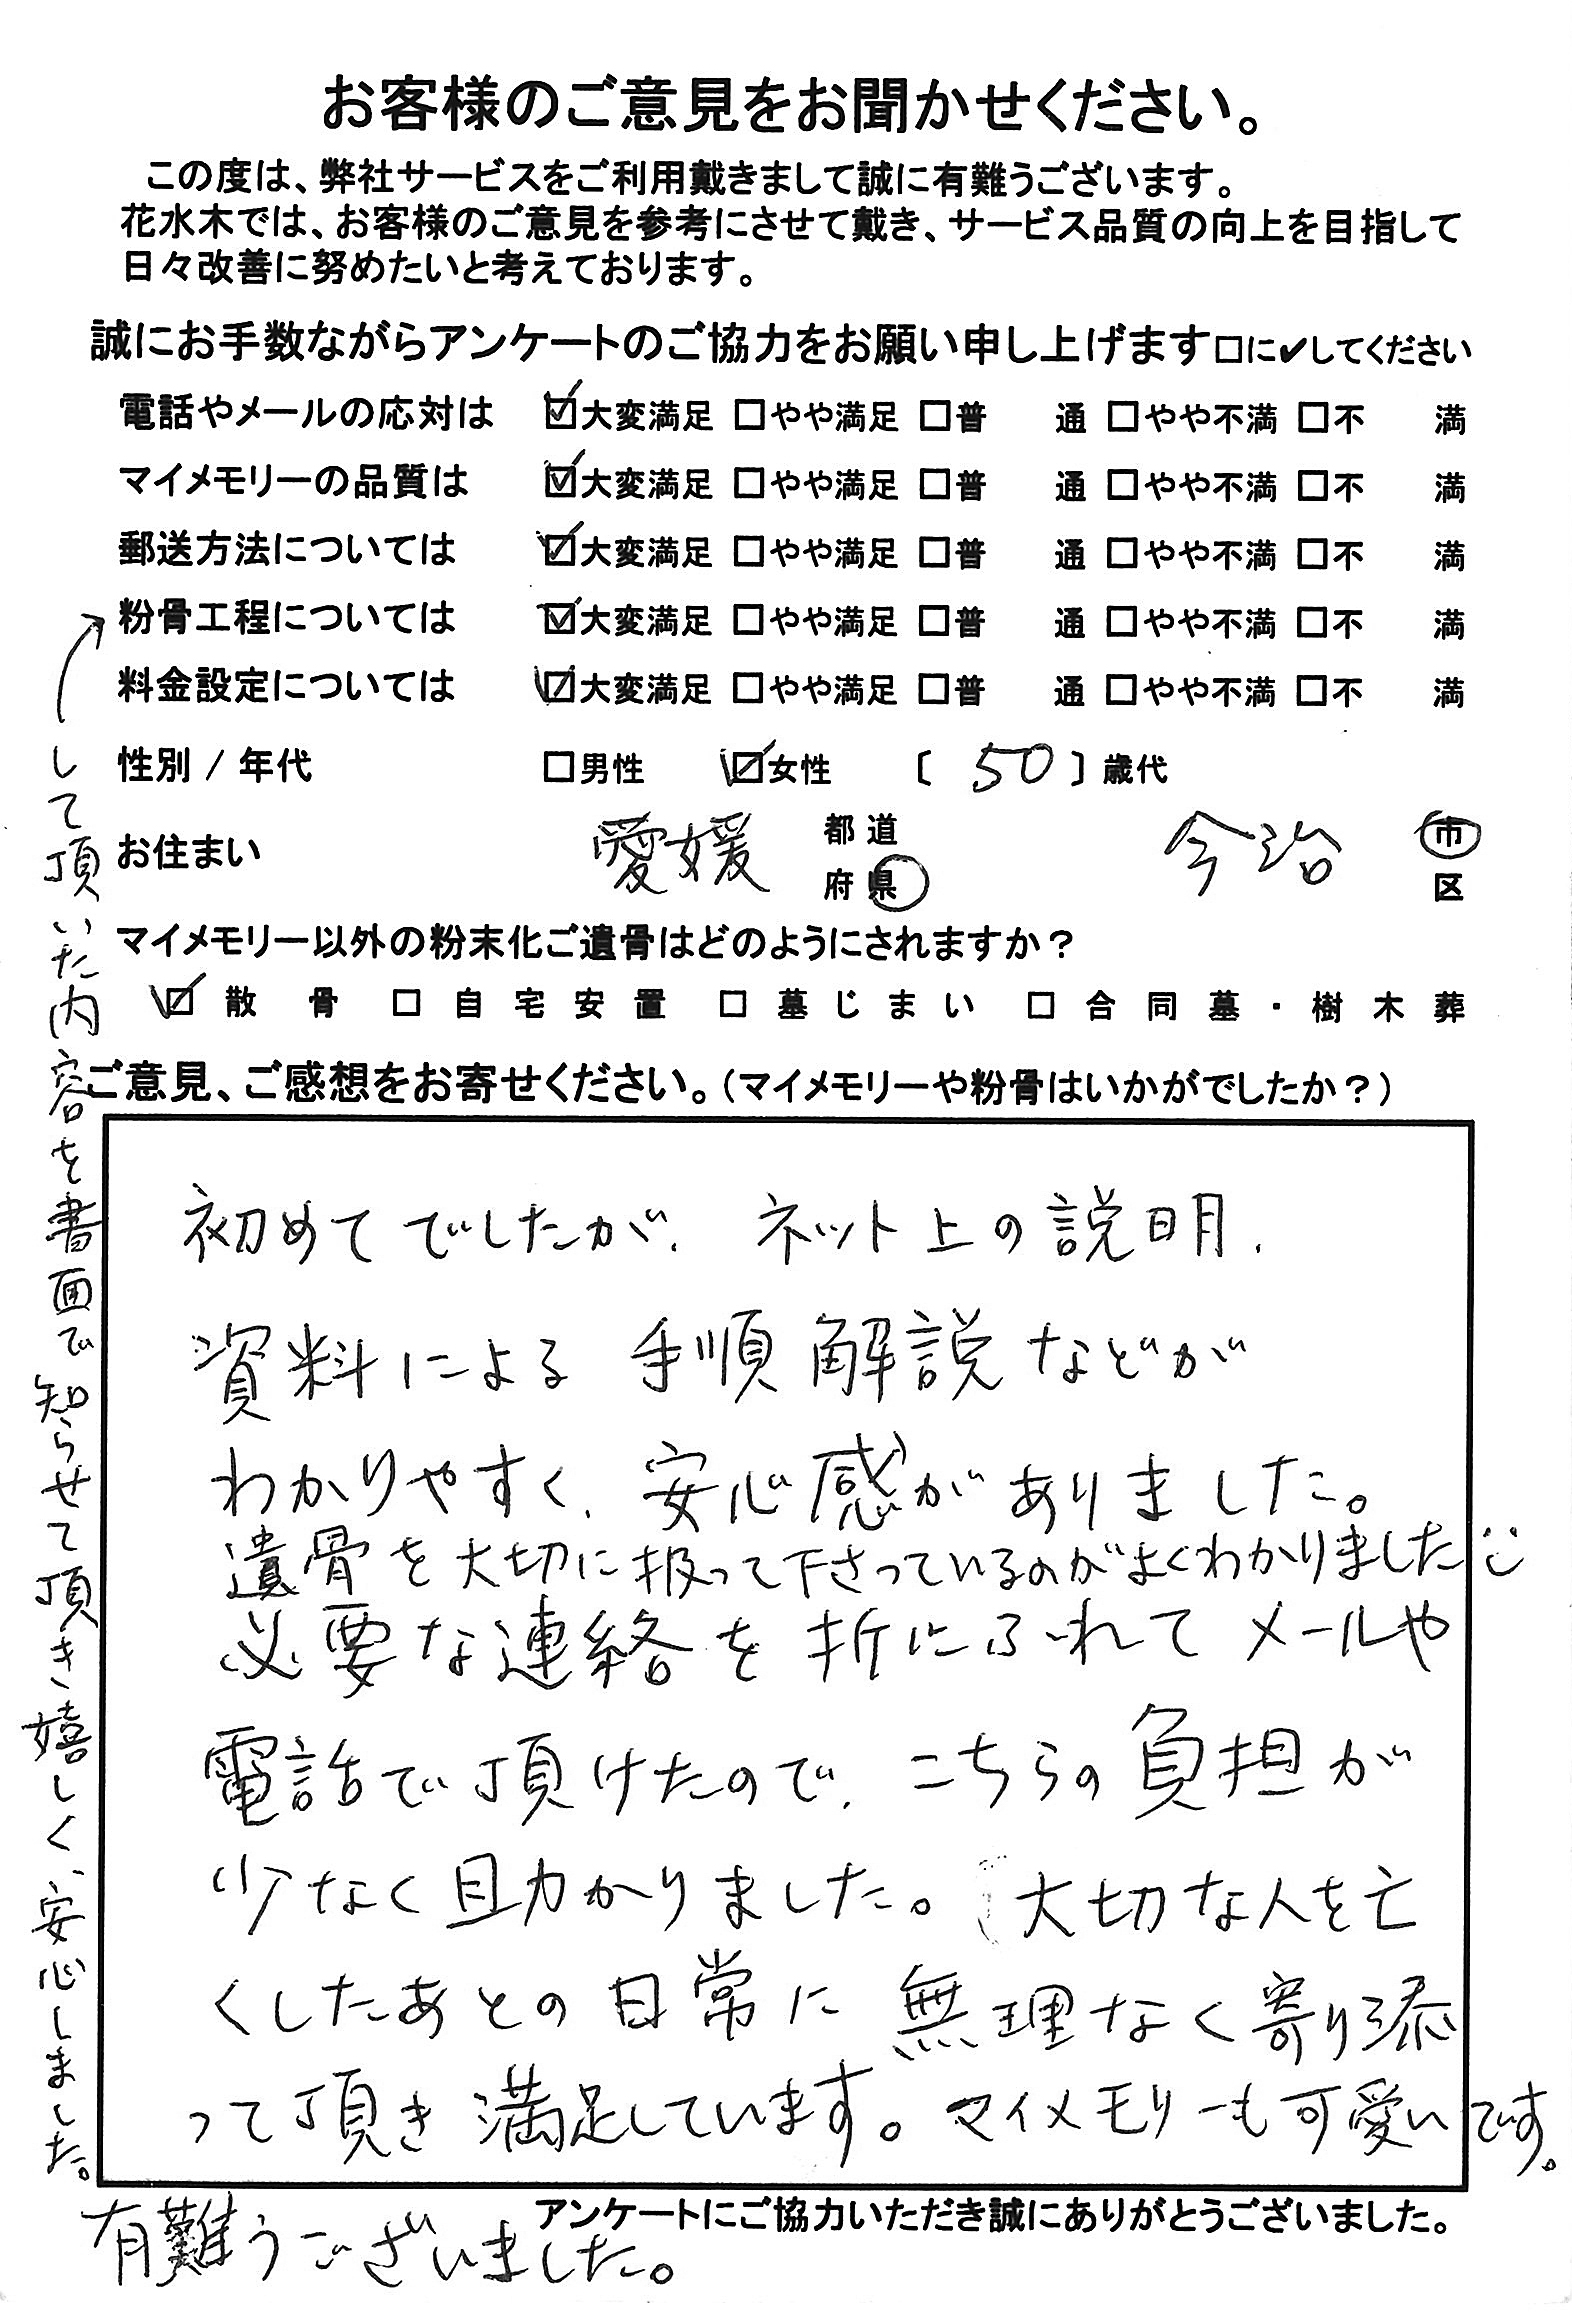 お客様のご意見をお聞かせください。
この度は、弊社サービスをご利用戴きまして誠に有難うございます。
花水木では、お客様のご意見を参考にさせて戴き、サービス品質の向上を目指して
日々改善に努めたいと考えております。
誠にお手数ながらアンケートのご協力をお願い申し上げます□に✔してください
電話やメールの応対は ☑大変満足 □やや満足 □普 通 □やや不満 □不 満
マイメモリーの品質は ☑大変満足 □やや満足 □普 通 □やや不満 □不 満
郵送方法については ☑大変満足 □やや満足 □普 通 □やや不満 □不 満
粉骨工程については ☑大変満足 □やや満足 □普 通 □やや不満 □不 満
料金設定については ☑大変満足 □やや満足 □普 通 □やや不満 □不 満
性別 / 年代 □男性 ☑女性 〔 50 〕歳代
お住まい 愛媛 都道府県 今治 市区
マイメモリー以外の粉末化ご遺骨はどのようにされますか?
☑ 散骨 □ 自宅安置 □ 墓じまい □ 合同墓・樹木葬
ご意見、ご感想をお寄せください。(マイメモリーや粉骨はいかがでしたか?)
初めてでしたが、ネット上の説明、
資料による手順解説などが
わかりやすく、安心感がありました。
遺骨を大切に扱って下さっているのがよくわかりました
必要な連絡を折にふれてメールや
電話で頂けたので、こちらの負担が
少なく助かりました。大切な人を亡
くしたあとの日常に無理なく寄り添
って頂き満足しています。マイメモリーも可愛いです。
アンケートにご協力いただき誠にありがとうございました。
有難うございました。
して頂いた内容を書面で知らせて頂き嬉しく、安心しました。